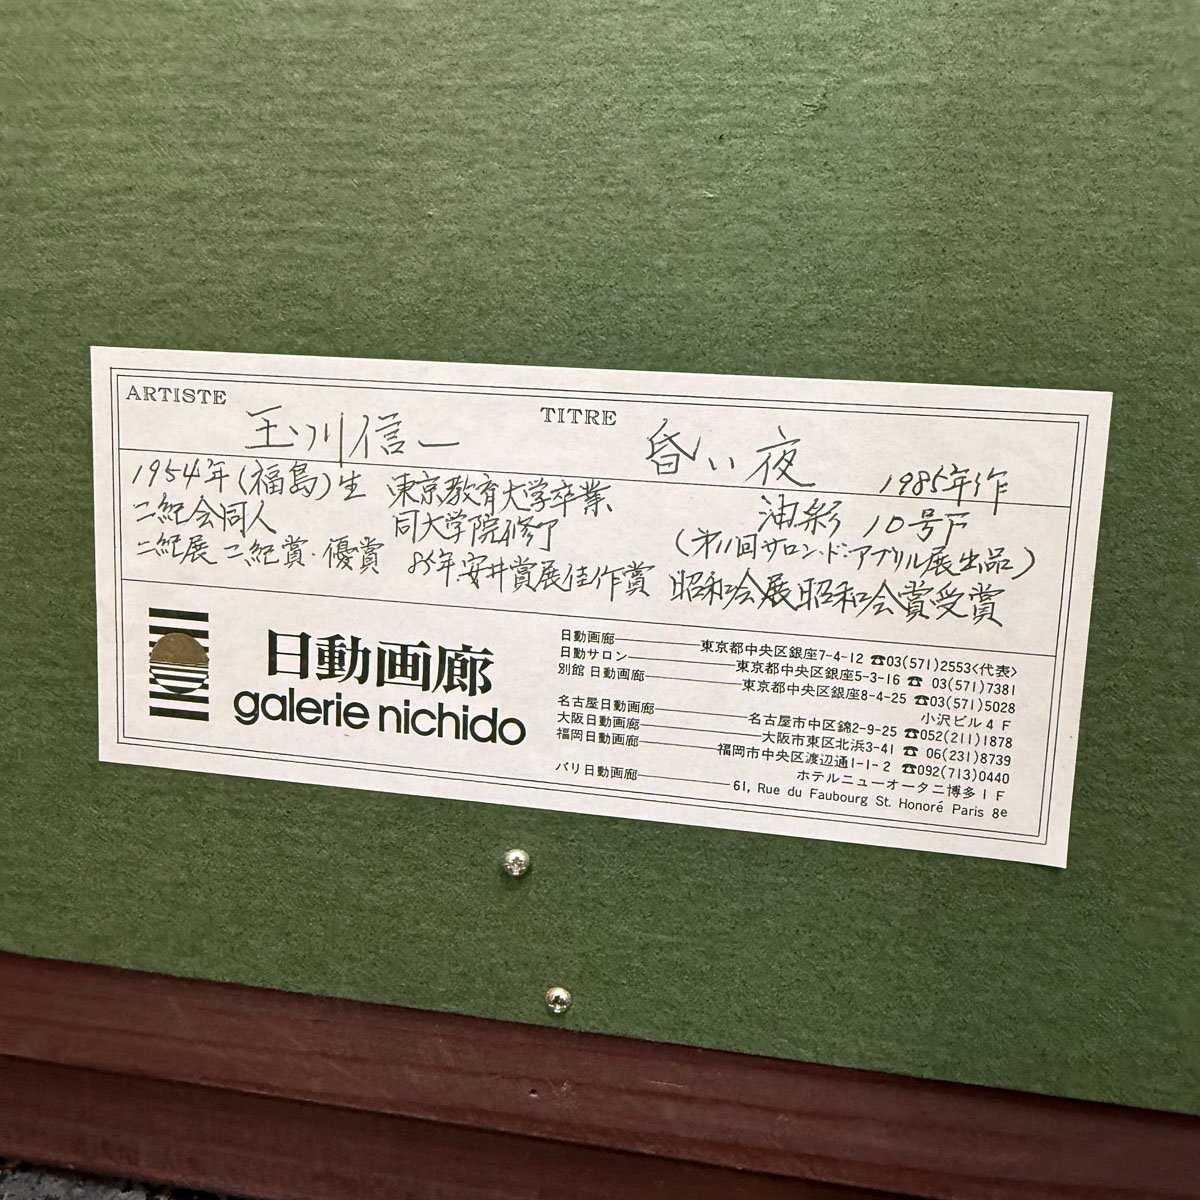 ARTISTE 玉川信一 TITRE 昏い夜 1985年作
1954年(福島)生 東京教育大学卒業 油彩 10号F
二紀会同人 同大学院修了 (第11回サロン・ド・アブリル展出品)
二紀展 二紀賞・優賞 85年安井賞展佳作賞 昭和会展昭和会賞受賞
日動画廊
galerie nichido
日動画廊 東京都中央区銀座7-4-12 ☎03(571)2553<代表>
日動サロン 東京都中央区銀座5-3-16 ☎ 03(571)7381
別館 日動画廊 東京都中央区銀座8-4-25 ☎03(571)5028
小沢ビル4F
名古屋日動画廊 名古屋市中区錦2-9-25 ☎052(211)1878
大阪日動画廊 大阪市東区北浜3-41 ☎ 06(231)8739
福岡日動画廊 福岡市中央区渡辺通1-1-2 ☎092(713)0440
ホテルニューオータニ博多1F
パリ日動画廊 61, Rue du Faubourg St. Honoré Paris 8e